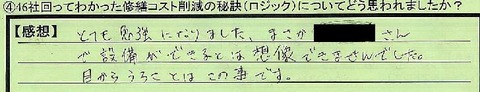 ④46社回ってわかった修繕コスト削減の秘訣（ロジック）についてどう思われましたか？
【感想】 とても勉強になりました、まさか さん
で設備ができるとは想像できませんでした。
目からうろことはこの事です。